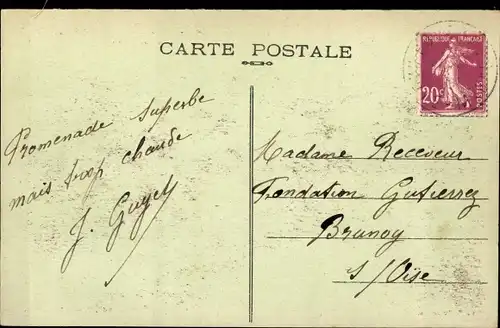 CARTE POSTALE
REPUBLIQUE FRANÇAISE
20c
POSTES
Promenade superbe
mais trop chaude
J. Guyot
Madame Receveur
Fondation Gutierrez
Brunoy
s/Oise